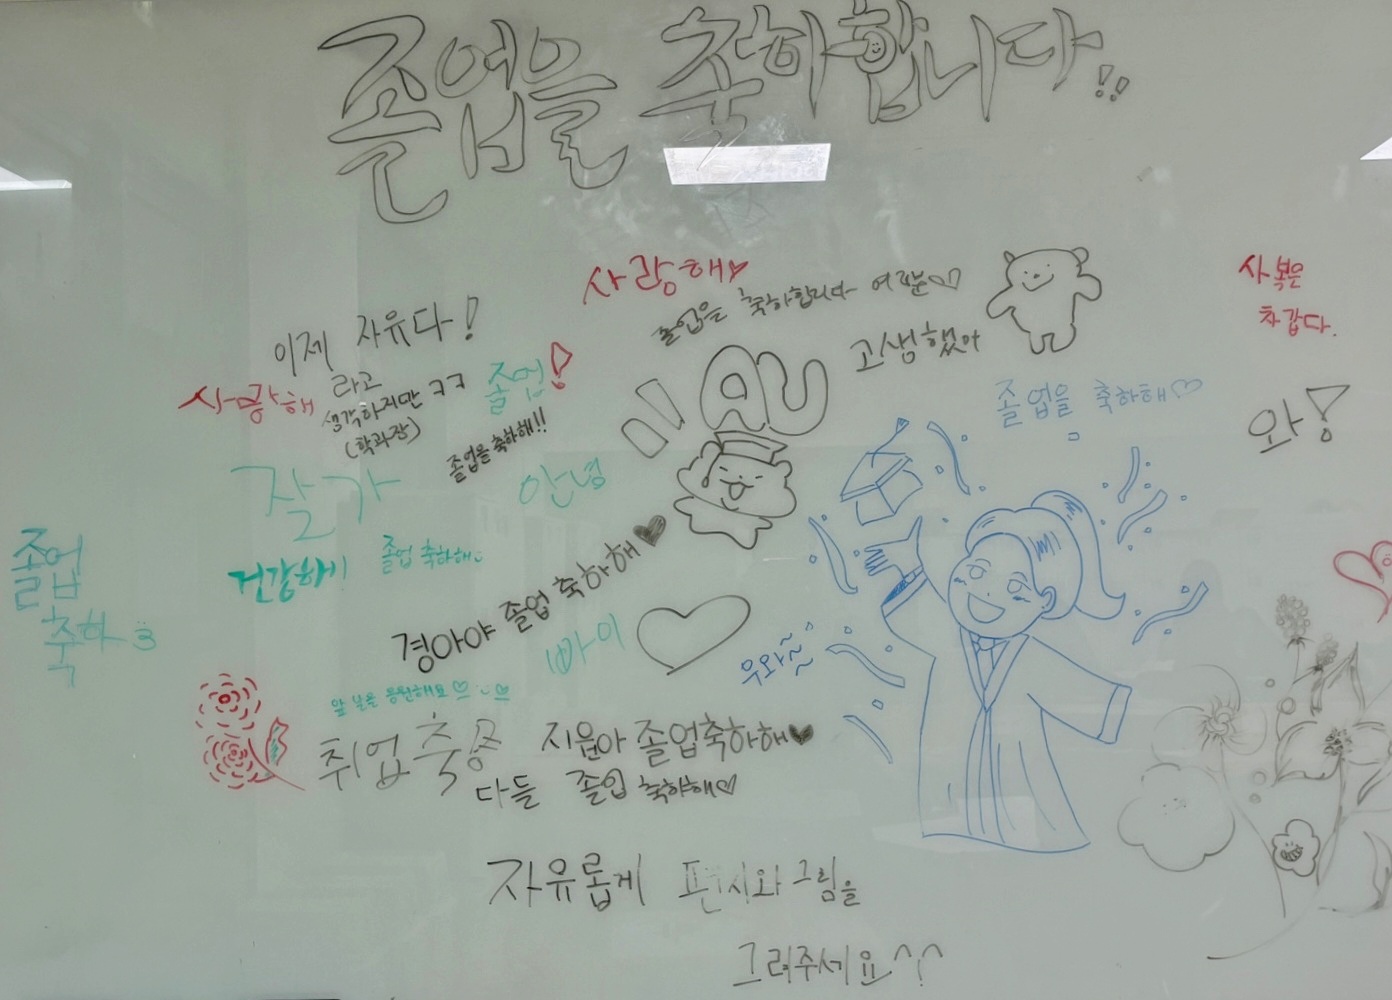 졸업을 축하합니다!!
사랑해♥
졸업을 축하합니다 여러분♡
고생했어
사복은
차갑다.
이제 자유다!
라고
생각하지만 ㅋㅋ
(학과장)
사랑해
졸업!
졸업을 축하해!!
졸업을 축하해♡
와!
잘가
안녕
건강하게
졸업 축하해
졸업
축하
경아야 졸업 축하해♥
빠이
우와~~
앞 날을 응원해요♡ ♡
취업 축
지윤아 졸업축하해♥
다들 졸업 축하해♡
자유롭게 편지와 그림을
그려주세요^^